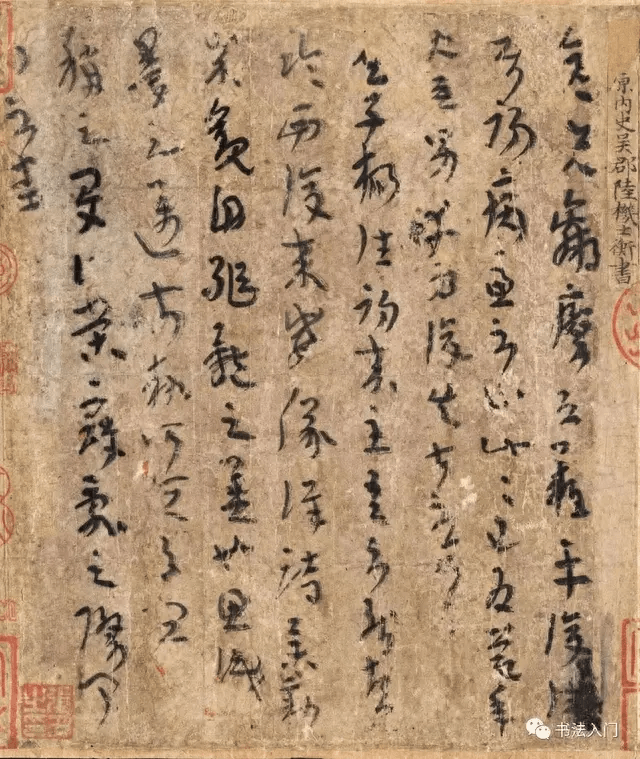 原內史吳郡陸機士衡書
彥先羸瘵恐難平復往屬
初病慮不止此此已為慶承
使唯男幸為復失前憂耳
吳子楊往初來主吾不能盡
臨西復來威儀詳跱舉動成
觀自軀體之美也思識
量之邁前勢所恒有宜
稱之夏伯榮寇亂之際聞
問不悉
书法入门